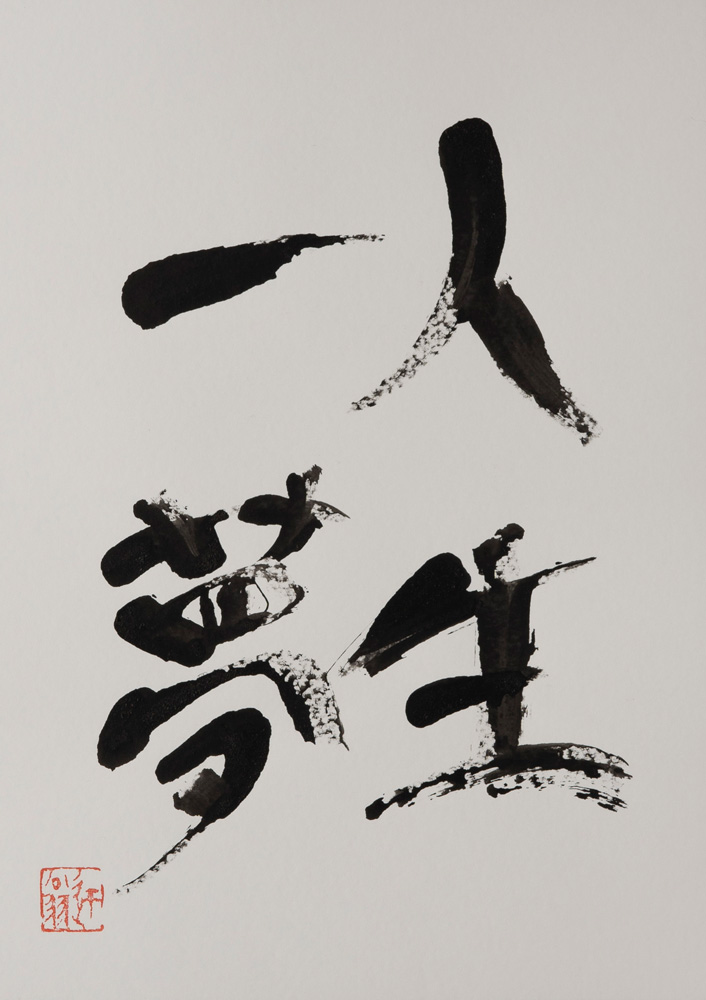 人生
一夢